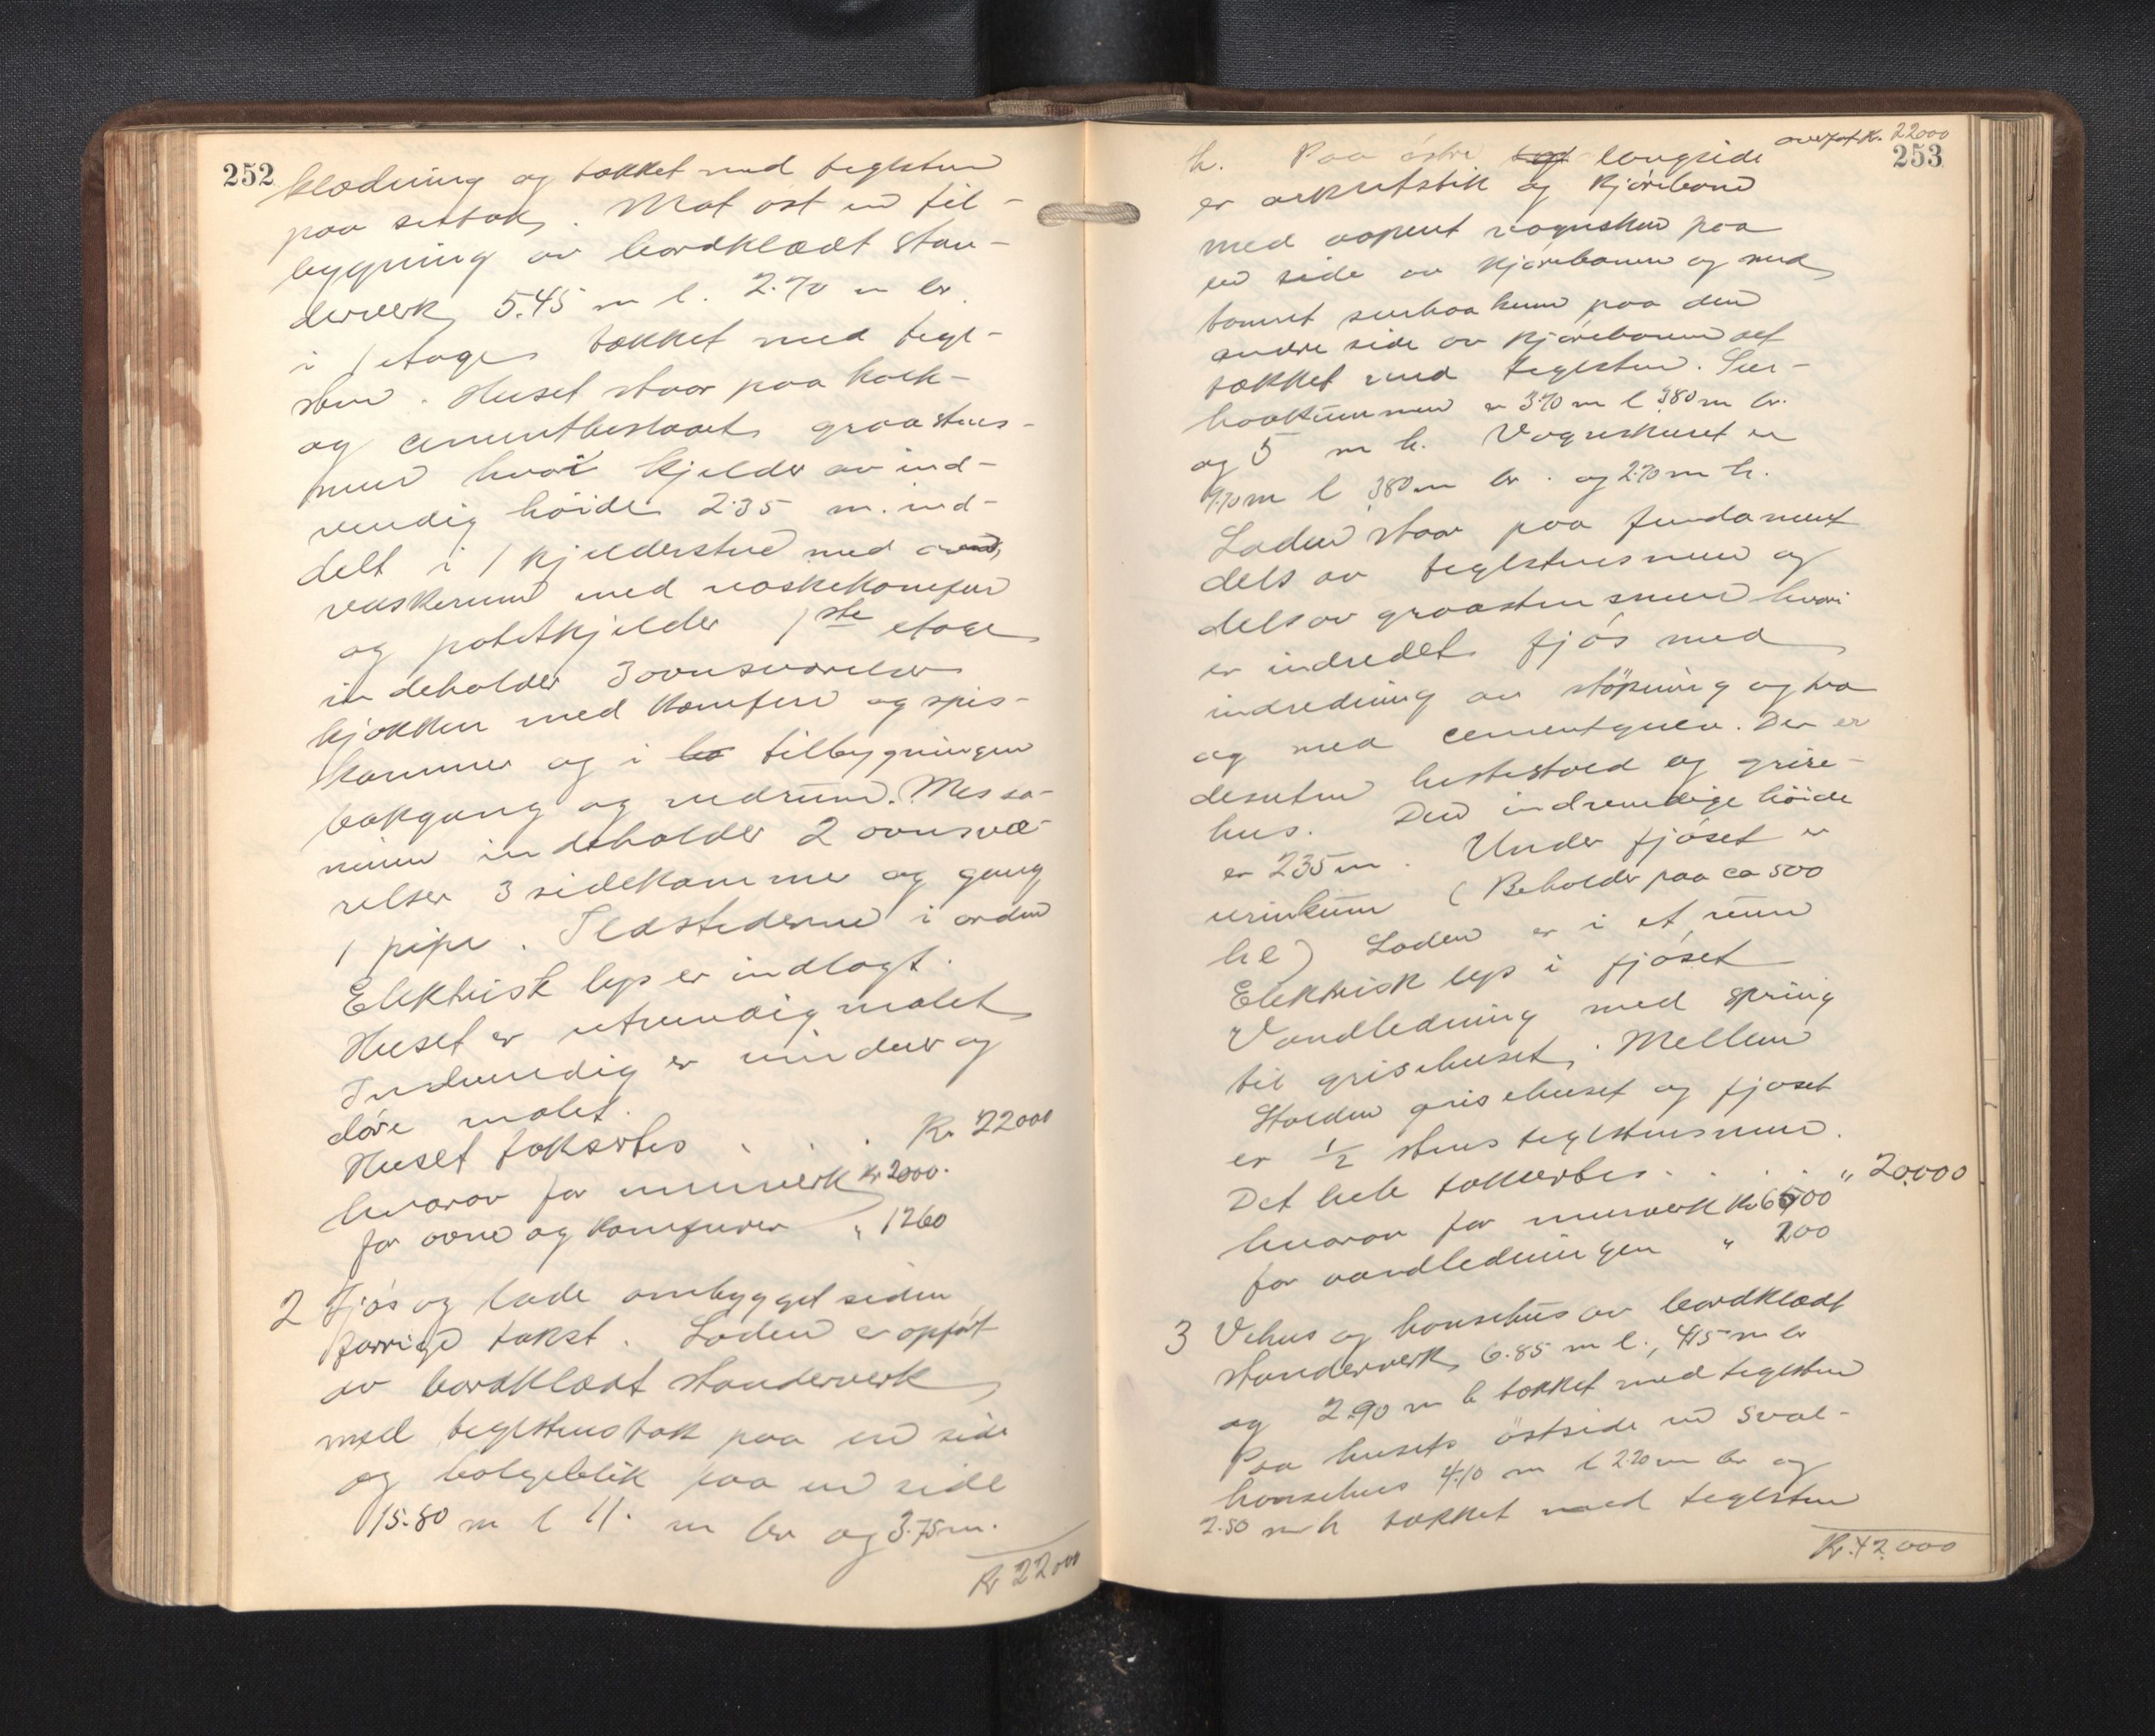 252
klædning og tækket med teglsten
paa sutak. Mot øst en til-
bygning av bordklædt stan-
derverk 5.45 m l. 2.70 m br.
i 1 etage tækket med tegl-
sten. Huset staar paa kalk-
og cementbeslaaet graastens-
mur hvori kjelder av ind-
vendig høide 2.35 m. ind-
delt i 1 kjelderstue med
vaskerum med vaskekomfur
og potetkjelder 1ste etage
indeholder 3 ovnsværelser
kjøkken med komfur og spis-
kammer og i tilbygningen
bakgang og vedrum. Messa-
ninen indeholder 2 ovnsvæ-
relser 3 sidekammer og gang
1 pipe. Ildstederne i orden
Elektrisk lys er indlagt.
Huset er utvendig malet
Indvendig er vinduer og
døre malet.
Huset takseres . . . Kr. 22000
hvorav for murverk Kr 2000.
for ovne og komfurer " 1260
2 Fjøs og lade ombygget siden
forrige takst. Laden er opført
av bordklædt standerverk
med teglstenstak paa en side
og bølgeblik paa en side
15.80 m l 11. m br og 3.75 m.
Kr 22000
overført Kr. 22000
253
h. Paa østre langside
er og kjørebane
med aapent vognskur paa
en side av kjørebanen og med
tømret surhaakum paa den
andre side av kjørebanen alt
tækket med teglsten. Sur-
haakummen er 3.70 m l 3.80 m br.
og 5 m h. Vognskuret er
9.70 m l 3.80 m br. og 2.70 m h.
Laden staar paa fundament
dels av teglstensmur og
dels av graastensmur hvori
er indredet fjøs med
indredning av støpning og træ
og med cementgulv. Der er
desuten hestestald og grise-
hus. Den indvendige høide
er 2.35 m. Under fjøset er
urinkum (Beholder paa ca 500
hl) Laden er i et rum
Elektrisk lys i fjøset
Vandledning med spring
til grisehuset. Mellem
Stalden grisehuset og fjøset
er 1/2 stens teglstensmur.
Det hele takseres . . . " 20.000
hvorav for murverk Kr 6500
for vandledningen " 200
3 Vehus og hønsehus av bordklædt
standerverk 6.85 m l., 4.15 m br
og 2.90 m h tækket med teglsten
Paa husets østside en sval-
hønsehus 4.10 m l 2.20 m br og
2.50 m h tækket med teglsten
Kr. 42.000